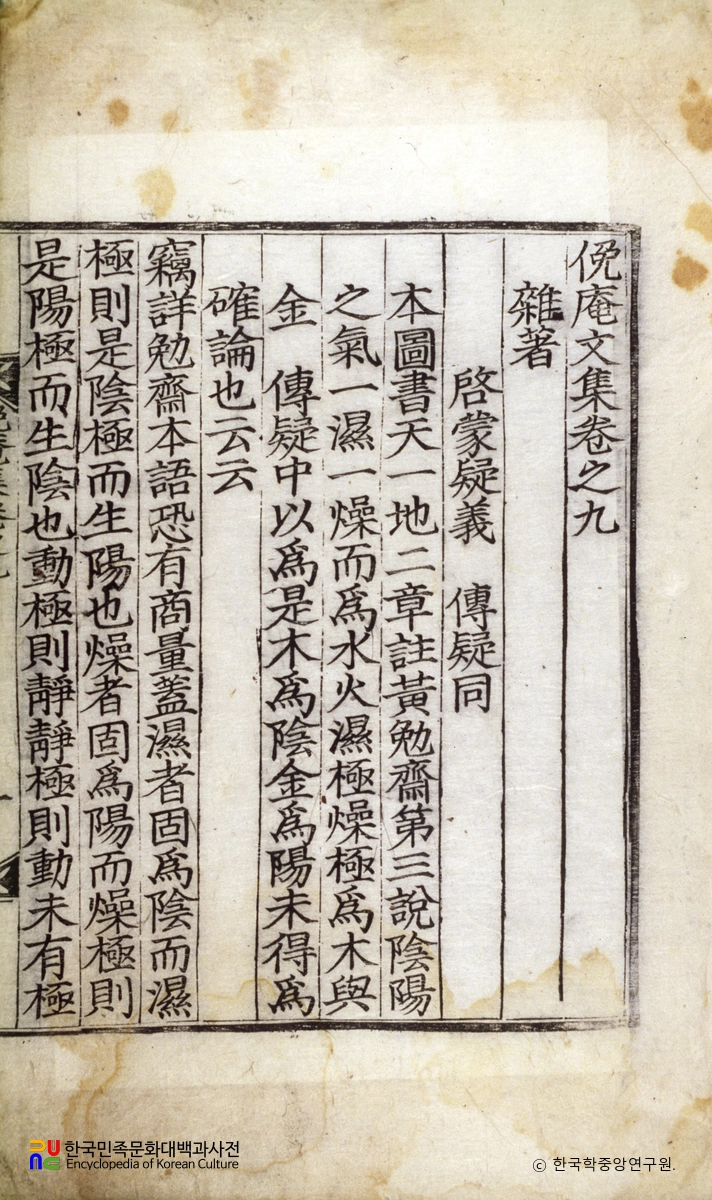 俛庵文集卷之九
雜著
啓蒙疑義 傳疑同
本圖書天一地二章註黃勉齋第三說陰陽
之氣一濕一燥而爲水火濕極燥極爲木與
金 傳疑中以爲是木爲陰金爲陽未得爲
確論也云云
竊詳勉齋本語恐有商量蓋濕者固爲陰而濕
極則是陰極而生陽也燥者固爲陽而燥極則
是陽極而生陰也動極則靜靜極則動未有極
한국민족문화대백과사전
Encyclopedia of Korean Culture
© 한국학중앙연구원.